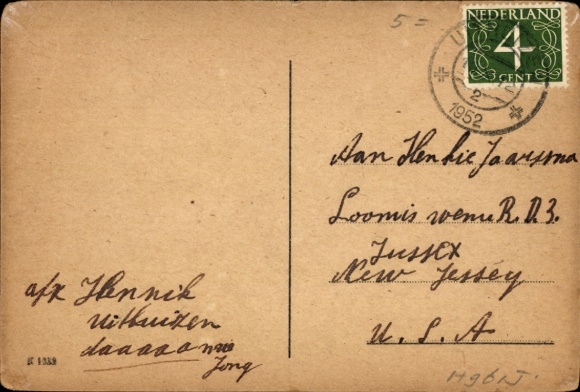 5 =
NEDERLAND
4
CENT
U
2
1952
Aan Henkie Jaarsma
Loomis wenue R. D. 3.
Sussex
New Jessey
U. S. A
afz Hennik
Uithuizen
daaaaa
Jong
K 1989